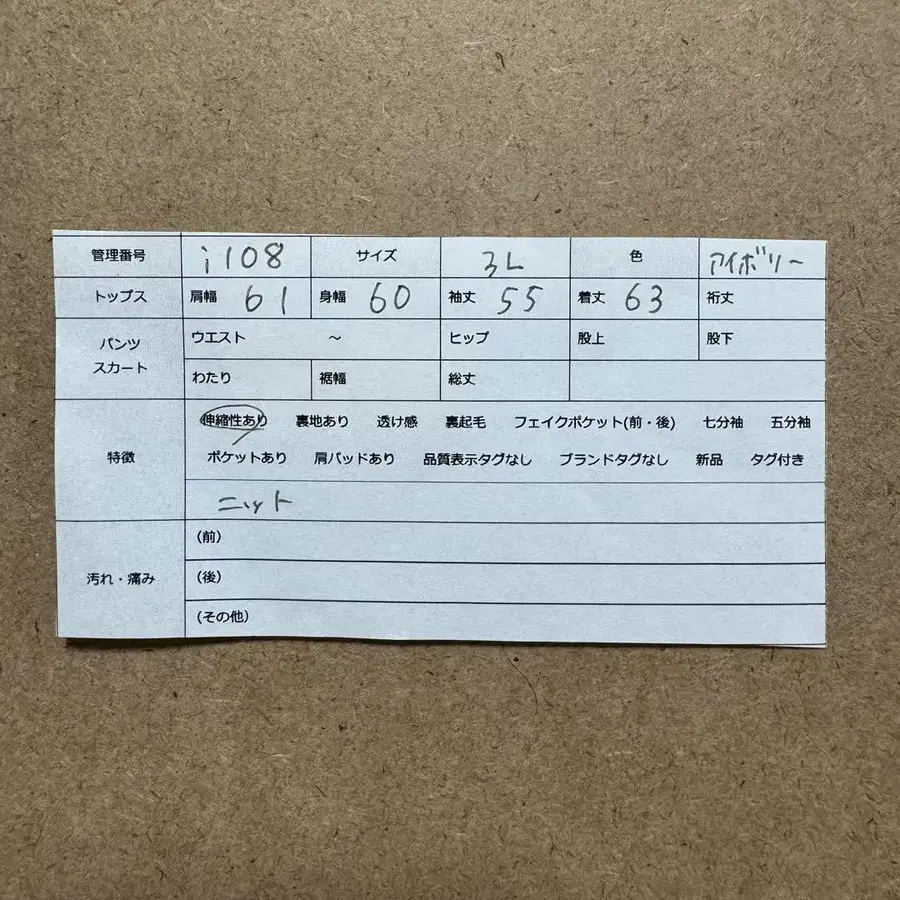 管理番号 i108 サイズ 3L 色 アイボリー
トップス 肩幅 61 身幅 60 袖丈 55 着丈 63 裄丈
パンツ スカート ウエスト ～ ヒップ 股上 股下
わたり 裾幅 総丈
特徴 伸縮性あり 裏地あり 透け感 裏起毛 フェイクポケット(前・後) 七分袖 五分袖
ポケットあり 肩パッドあり 品質表示タグなし ブランドタグなし 新品 タグ付き
ニット
汚れ・痛み (前)
(後)
(その他)